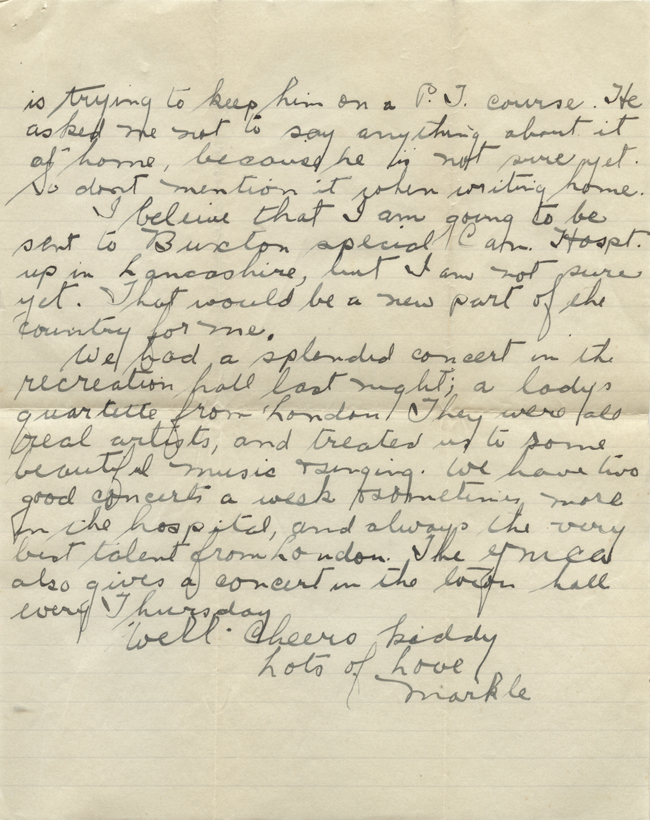 is trying to keep him on a P. T. course. He
asked me not to say anything about it
at home, because he is not sure yet.
So dont mention it when writing home.
I beleive that I am going to be
sent to Buxton special Can. Hospt.
up in Lancashire, but I am not sure
yet. That would be a new part of the
country for me.
We had a splendid concert in the
recreation hall last night; a ladys
quartette from London. They were all
real artists, and treated us to some
beautiful music & singing. We have two
good concerts a week & sometimes more
in the hospital, and always the very
best talent from London. The YMCA
also gives a concert in the town hall
every Thursday
Well Cheero kiddy
Lots of Love
Markle